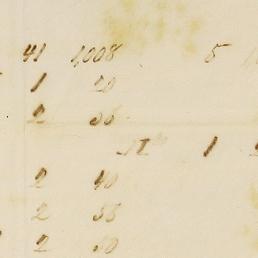 41 1,008 5
1 20
2 35
1
2 40
2 35
2 50